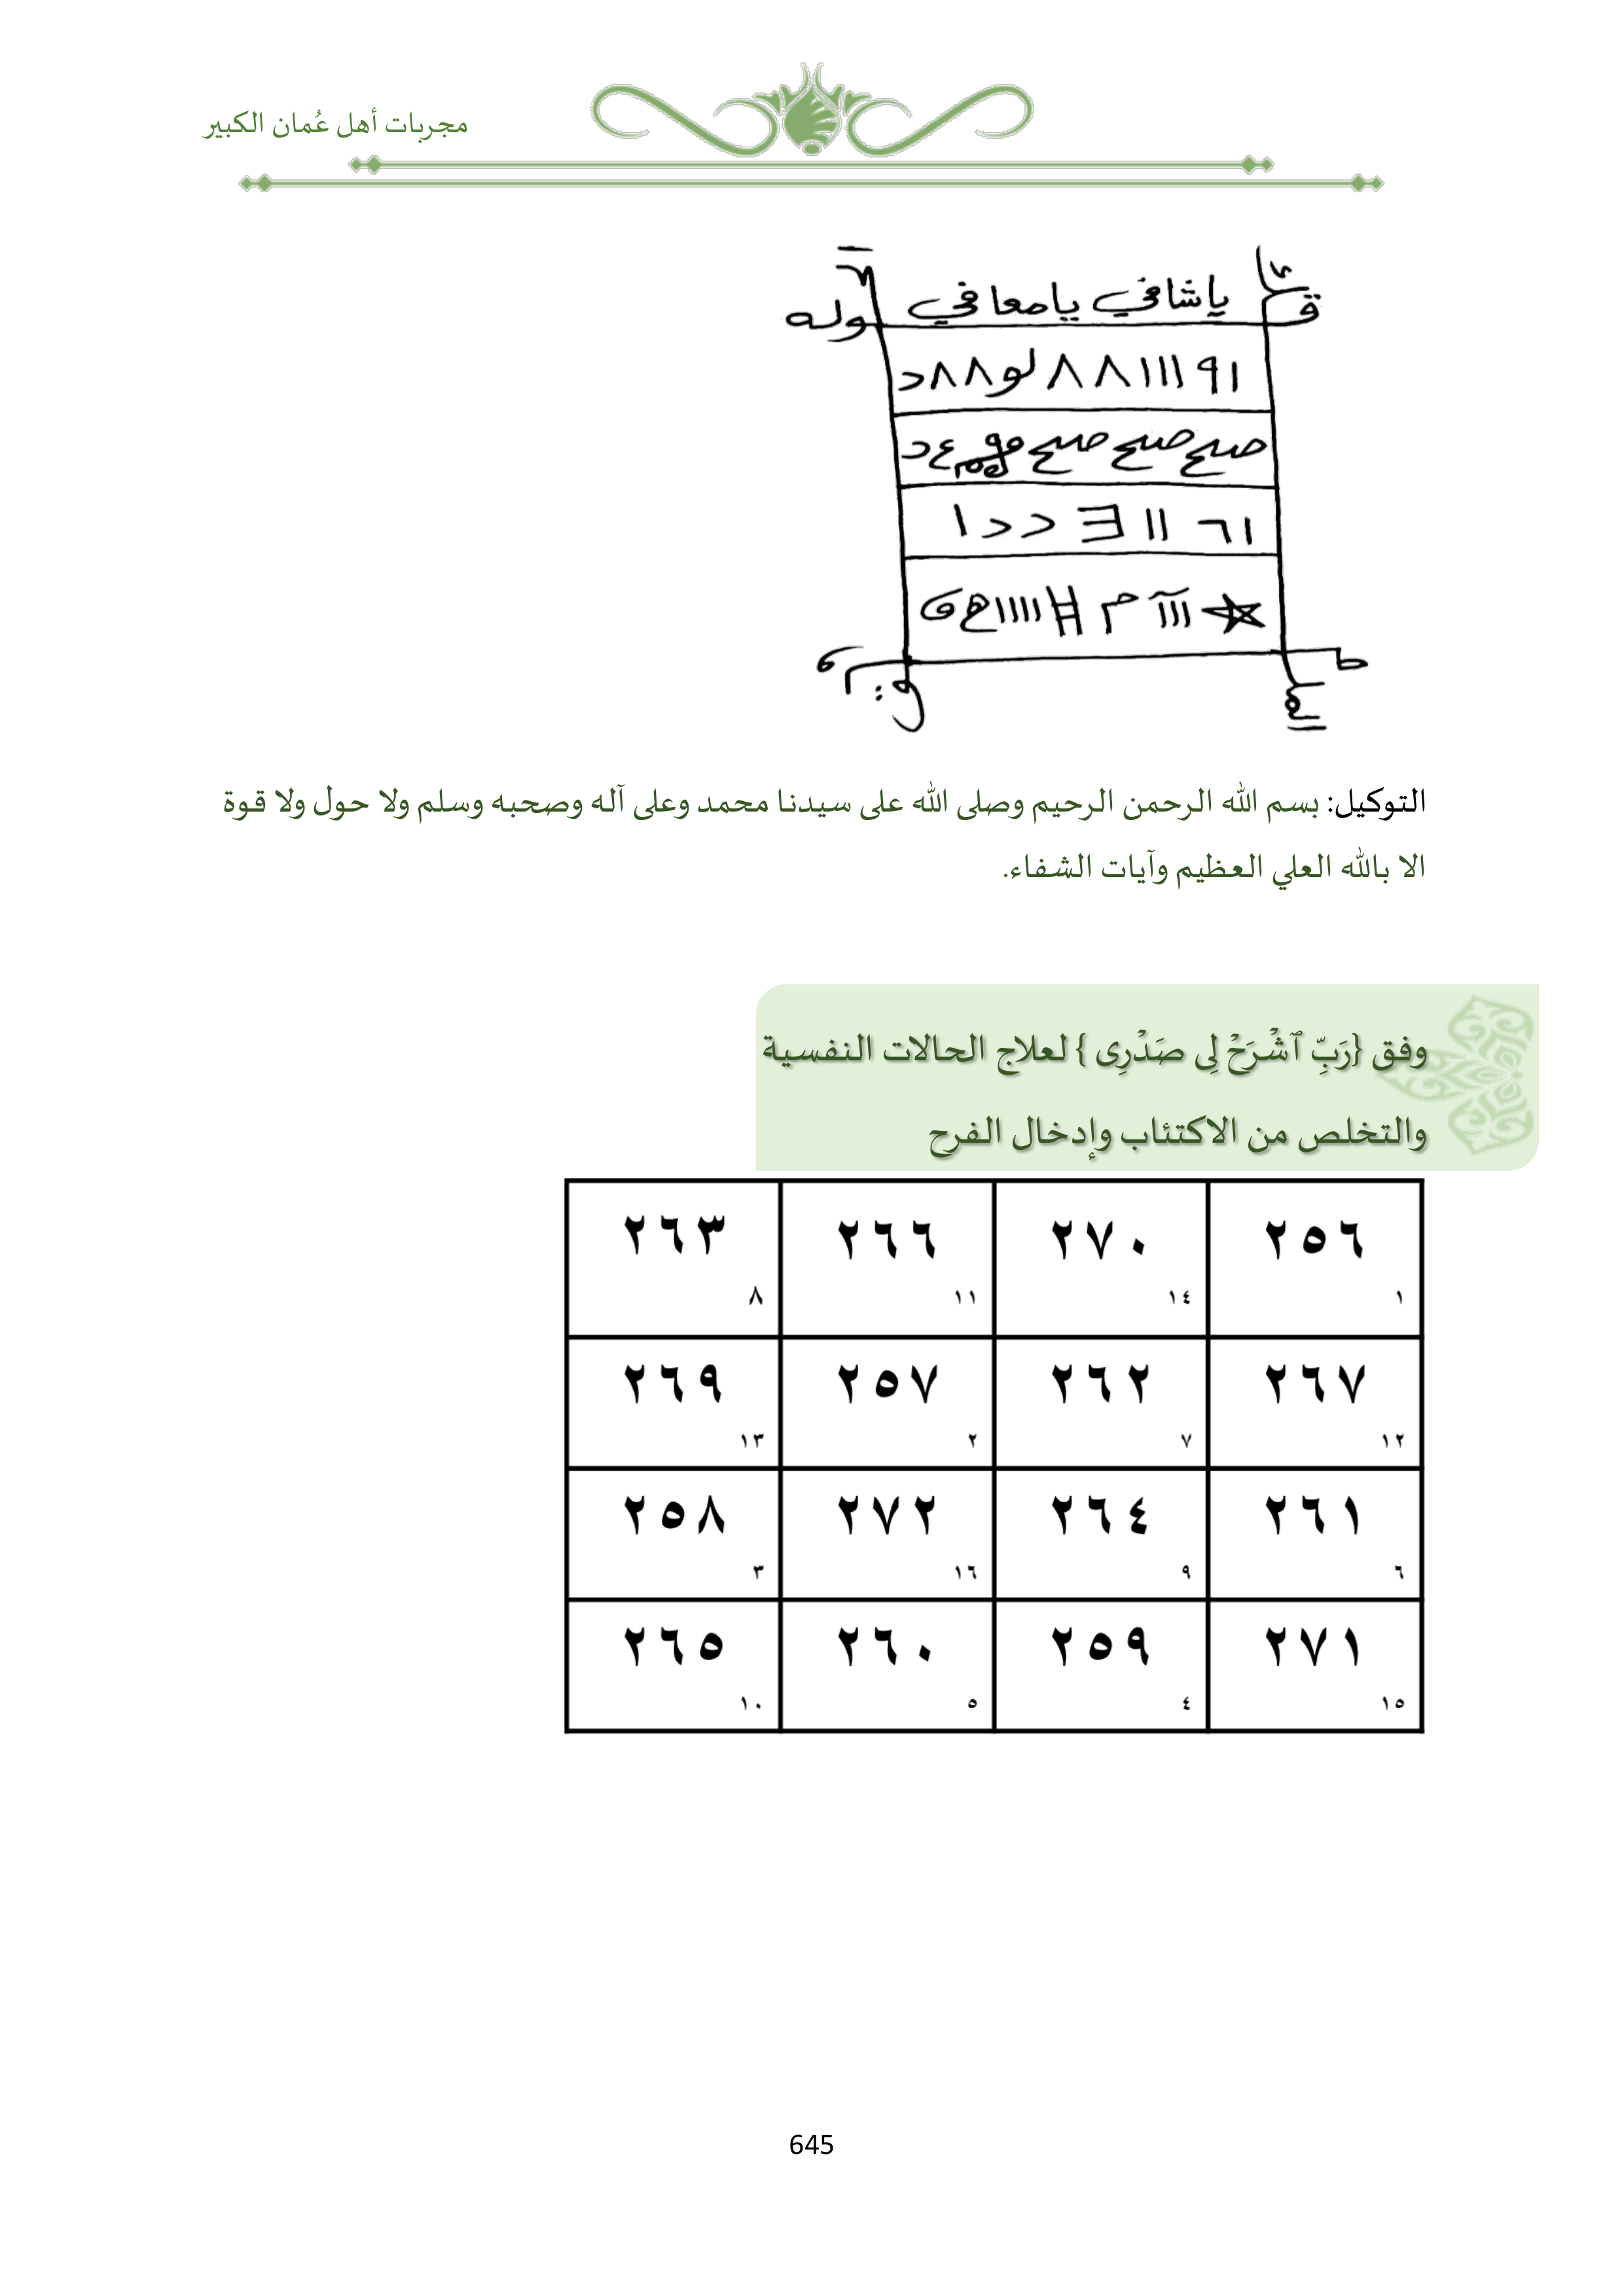 مجربات أهل عُمان الكبير
ياشافي يامعافي
وله
التوكيل: بسم الله الرحمن الرحيم وصلى الله على سيدنا محمد وعلى آله وصحبه وسلم ولا حول ولا قوة
الا بالله العلي العظيم وآيات الشفاء.
وفق {رَبِّ ٱشْرَحْ لِى صَدْرِى } لعلاج الحالات النفسية
والتخلص من الاكتئاب وإدخال الفرح
٢٥٦ ٢٧٠ ٢٦٦ ٢٦٣
١ ١٤ ١١ ٨
٢٦٧ ٢٦٢ ٢٥٧ ٢٦٩
١٢ ٧ ٢ ١٣
٢٦١ ٢٦٤ ٢٧٢ ٢٥٨
٦ ٩ ١٦ ٣
٢٧١ ٢٥٩ ٢٦٠ ٢٦٥
١٥ ٤ ٥ ١٠
645